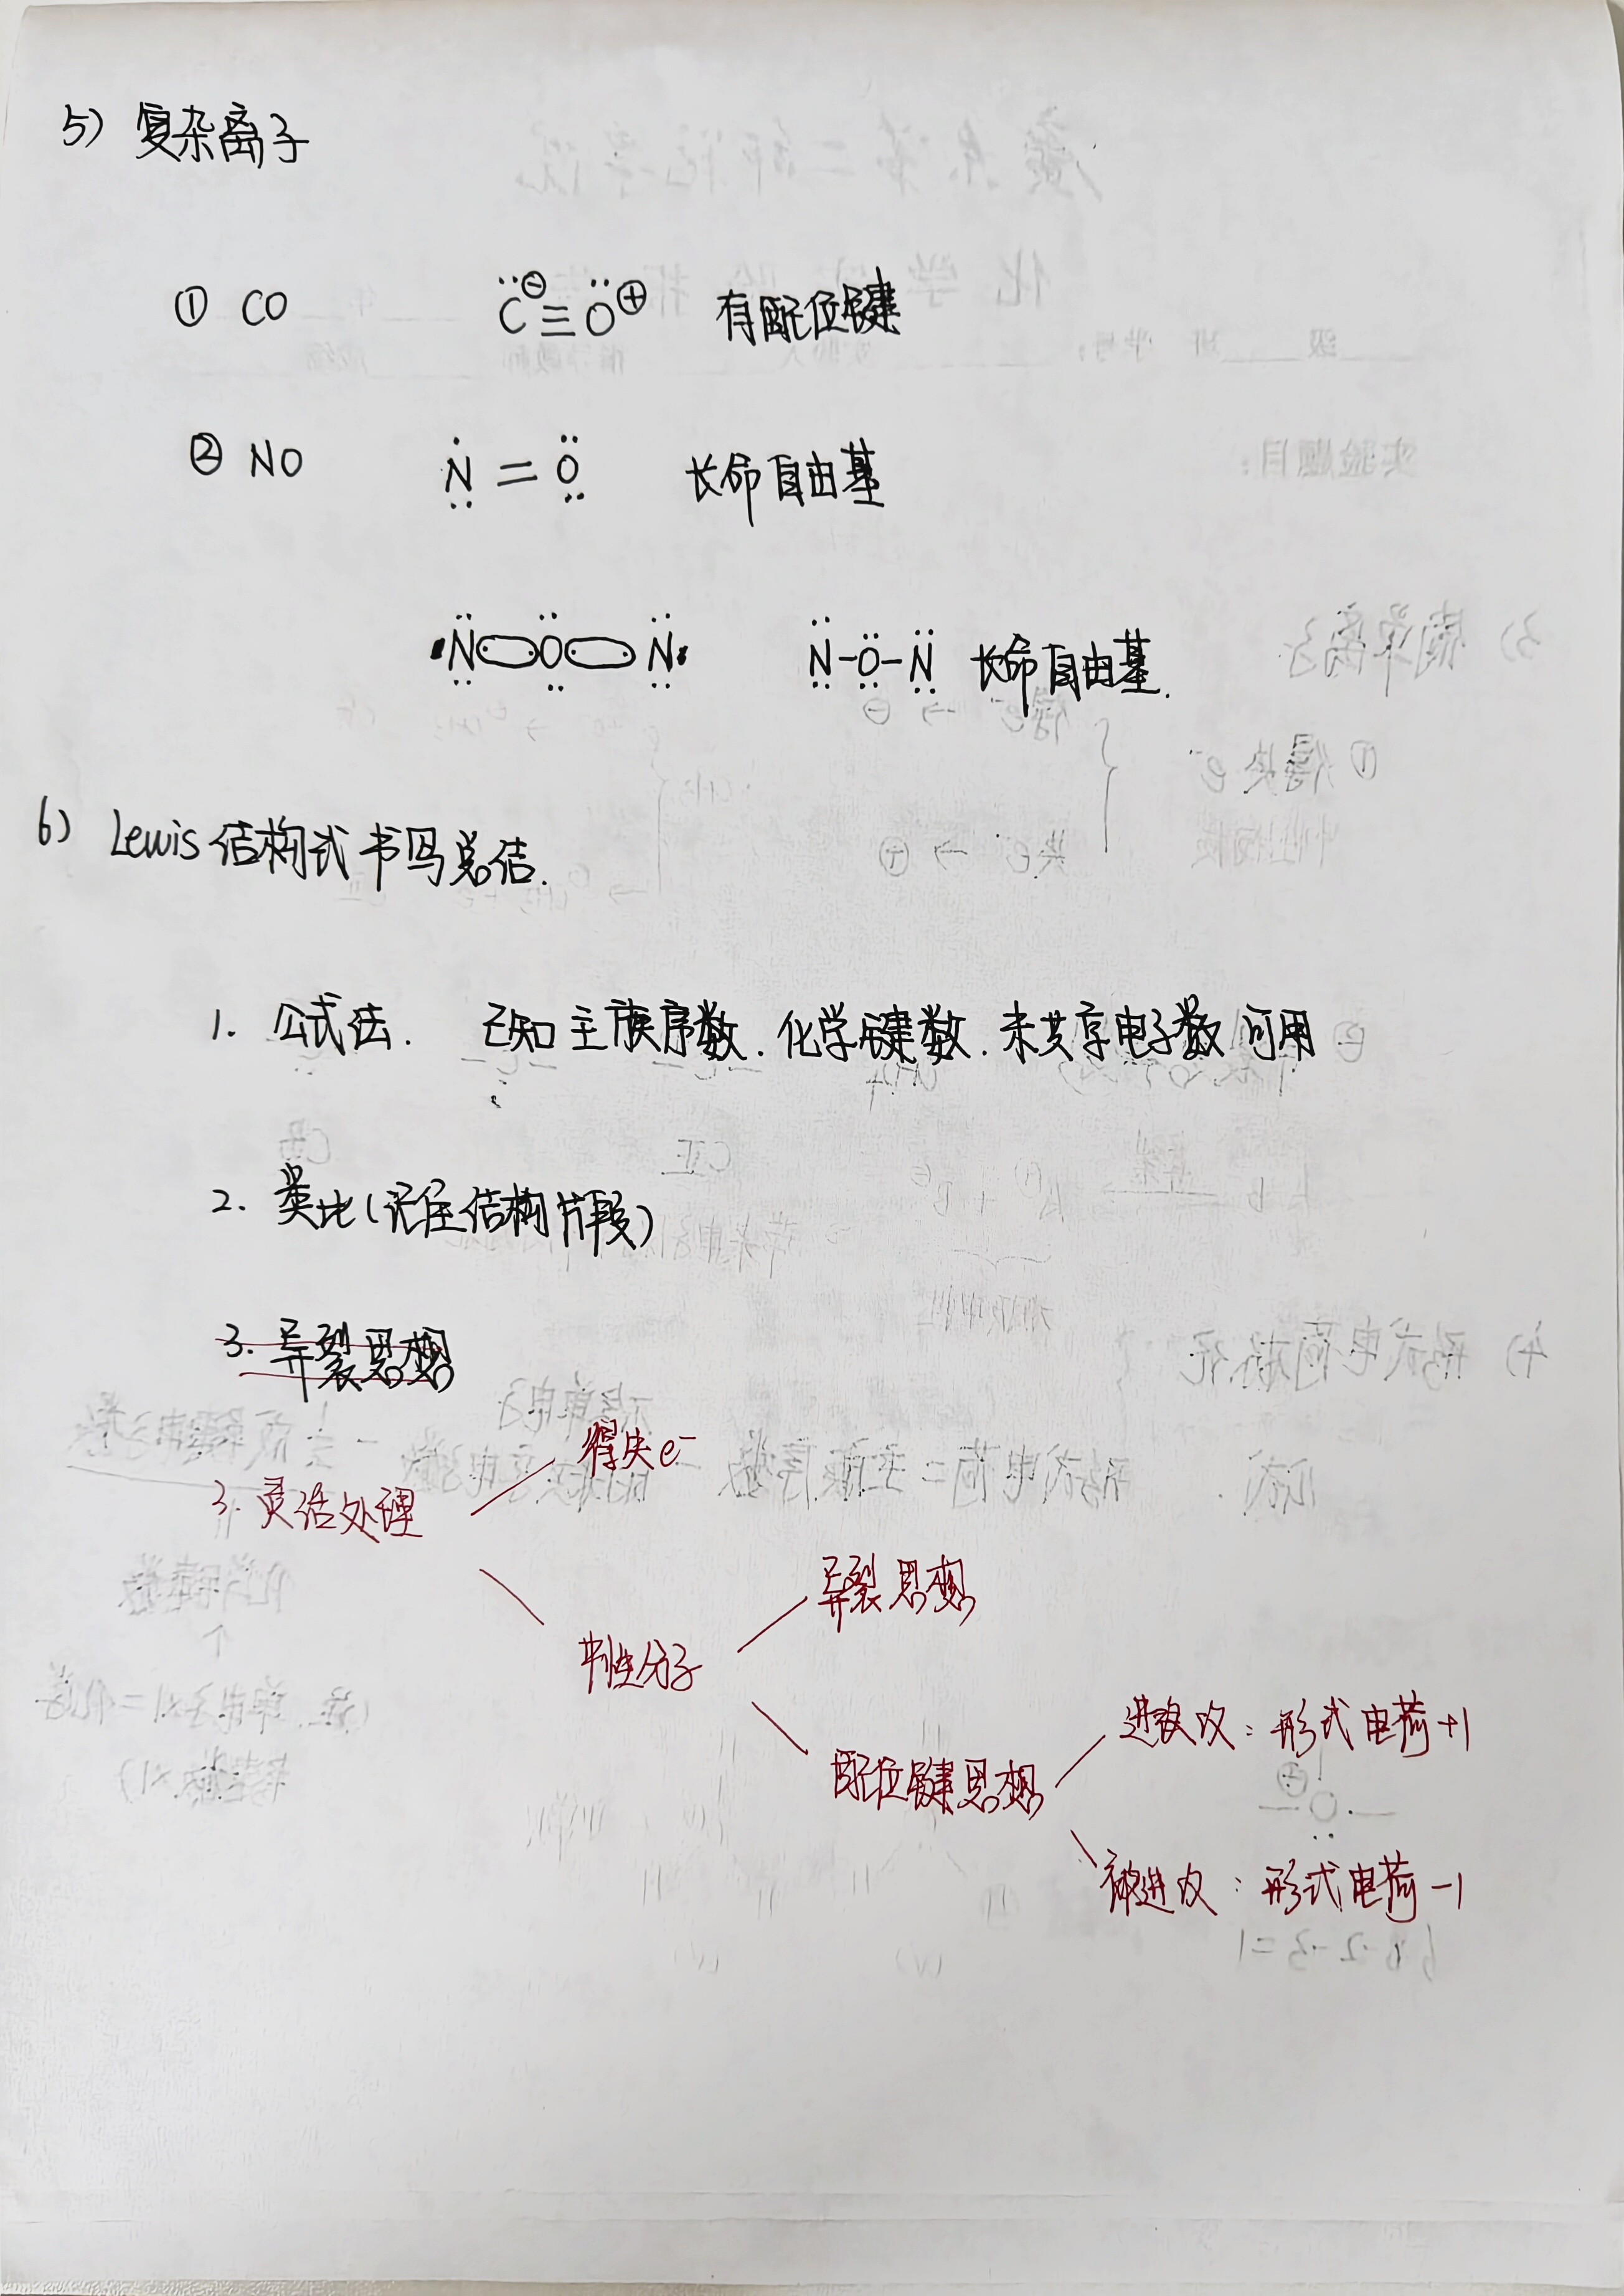 5) 复杂离子
① CO C⊖≡O⊕ 有配位键
② NO N=O 长命自由基
N O N N-O-N 长命自由基.
6) Lewis 结构式书写总结.
1. 公式法. 已知主族序数.化学键数.未共享电子数 可用
2. 类比(记住结构片段)
3. 异裂思想
3. 灵活处理
得失e⁻
中性分子
异裂思想
配位键思想
进攻:形式电荷+1
被进攻:形式电荷-1